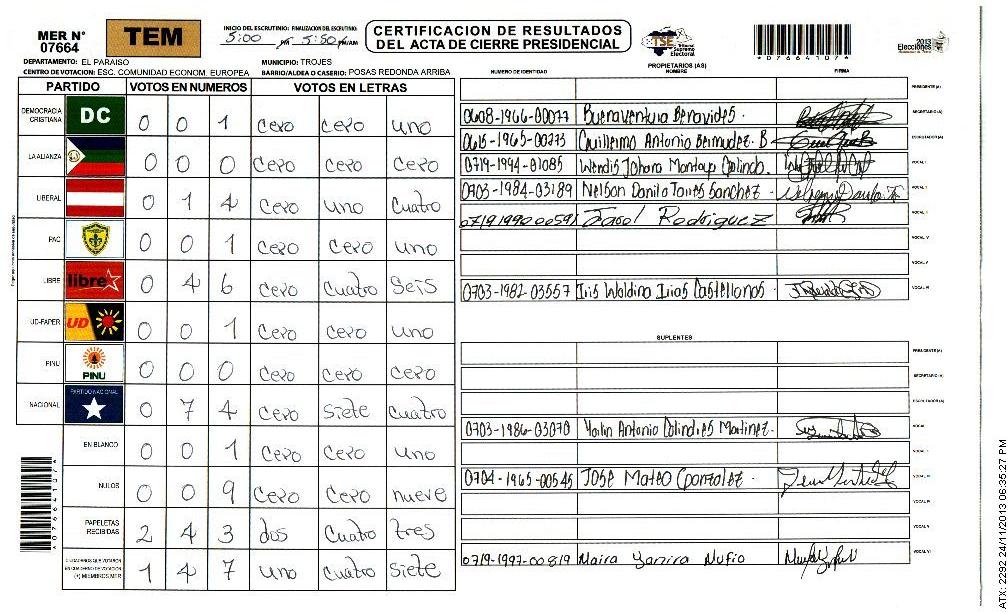 MER N° 07664
TEM
INICIO DEL ESCRUTINIO: FINALIZACION DEL ESCRUTINIO:
5:00 PM 5:50 PM/AM
CERTIFICACION DE RESULTADOS
DEL ACTA DE CIERRE PRESIDENCIAL
TSE Tribunal Supremo Electoral
*07664107*
2013 Elecciones
DEPARTAMENTO: EL PARAISO MUNICIPIO: TROJES
CENTRO DE VOTACION: ESC. COMUNIDAD ECONOM. EUROPEA BARRIO/ALDEA O CASERIO: POSAS REDONDA ARRIBA
PROPIETARIOS (AS)
NUMERO DE IDENTIDAD NOMBRE FIRMA
PARTIDO VOTOS EN NUMEROS VOTOS EN LETRAS
DEMOCRACIA CRISTIANA DC 0 0 1 Cero Cero uno
LA ALIANZA 0 0 0 Cero Cero Cero
LIBERAL 0 1 4 Cero uno Cuatro
PAC 0 0 1 Cero Cero uno
LIBRE libre 0 4 6 Cero Cuatro Seis
UD-FAPER UD 0 0 1 Cero Cero uno
PINU PINU 0 0 0 Cero Cero Cero
NACIONAL PARTIDO NACIONAL 0 7 4 Cero siete cuatro
EN BLANCO 0 0 1 Cero Cero uno
NULOS 0 0 9 Cero Cero nueve
PAPELETAS RECIBIDAS 2 4 3 dos Cuatro tres
CIUDADANOS QUE VOTARON EN CUADERNO DE VOTACION (+) MIEMBROS MER 1 4 7 uno Cuatro siete
*07664107*
PRESIDENTE (A)
0608-1966-00077 Buenaventura Benavides. SECRETARIO (A)
0615-1965-00273 Guillermo Antonio Bermudez. B ESCRUTADOR (A)
0719-1994-01085 Wendis Johana Montoya Galindo. VOCAL I
0703-1984-03189 Nelson Danilo Torres Sanchez VOCAL II
Rodriguez VOCAL III
VOCAL IV
VOCAL V
0703-1982-03557 Iris Waldina Irias Castellanos. VOCAL VI
SUPLENTES
PRESIDENTE (A)
SECRETARIO (A)
ESCRUTADOR (A)
0703-1986-03070 Antonio Colindres Martinez. VOCAL I
VOCAL II
0704-1965-00545 JOSE Mateo Gonzalez VOCAL III
VOCAL IV
VOCAL V
0719-1997-00819 Maira Yanira Nufio VOCAL VI
ATX: 2292 24/11/2013 06:35:27 PM